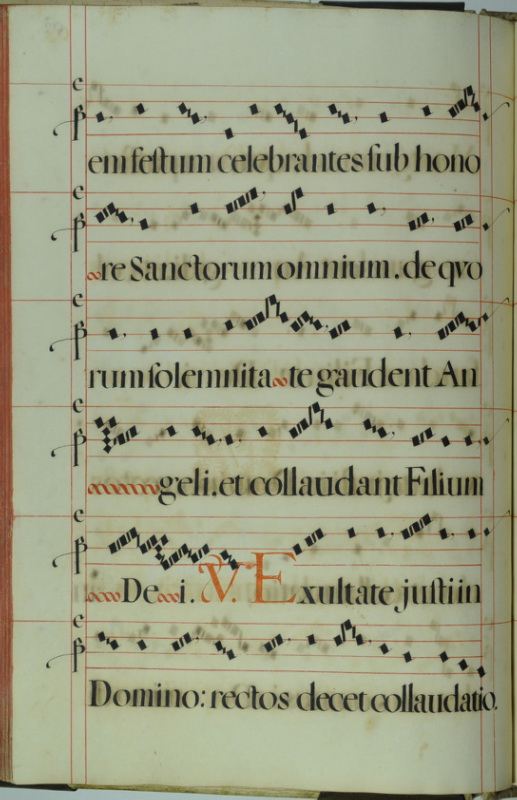 em festum celebrantes sub hono
re Sanctorum omnium. de qvo
rum solemnita te gaudent An
geli. et collaudant Filium
De i. V. Exultate justi in
Domino: rectos decet collaudatio.